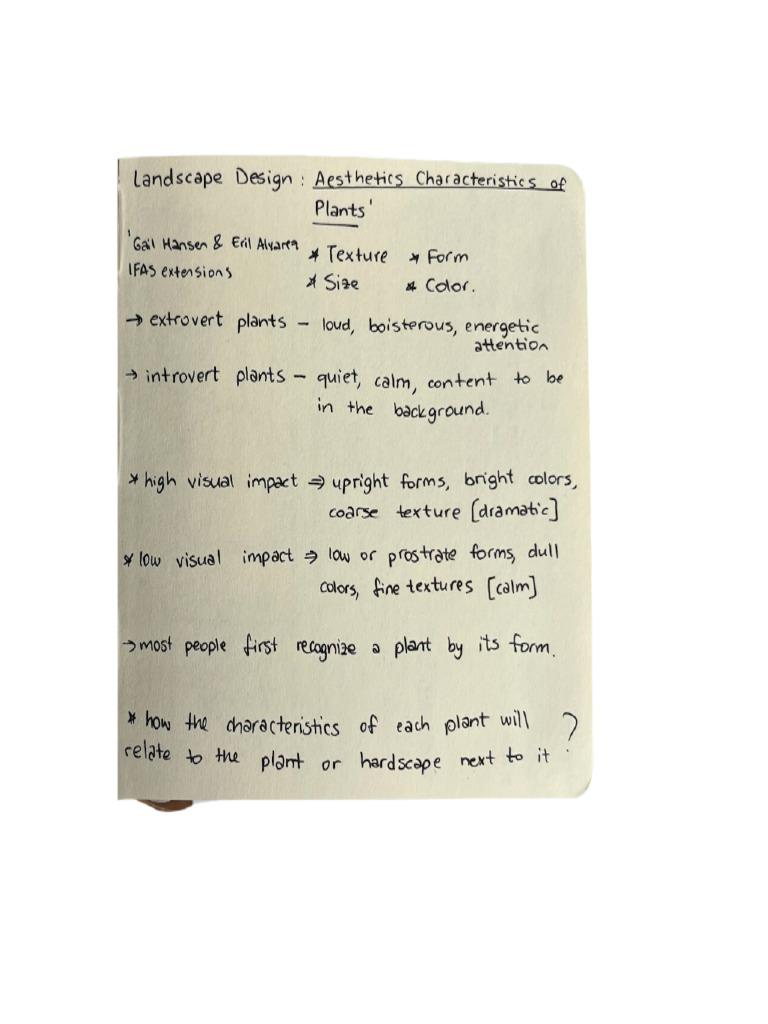 Landscape Design : Aesthetics Characteristics of
Plants'
'Gail Hansen & Eril Alvarez
IFAS extensions
* Texture * Form
* Size * Color.
→ extrovert plants – loud, boisterous, energetic
attention
→ introvert plants – quiet, calm, content to be
in the background.
* high visual impact ⇒ upright forms, bright colors,
coarse texture [dramatic]
* low visual impact ⇒ low or prostrate forms, dull
colors, fine textures [calm]
→ most people first recognize a plant by its form.
* how the characteristics of each plant will ?
relate to the plant or hardscape next to it